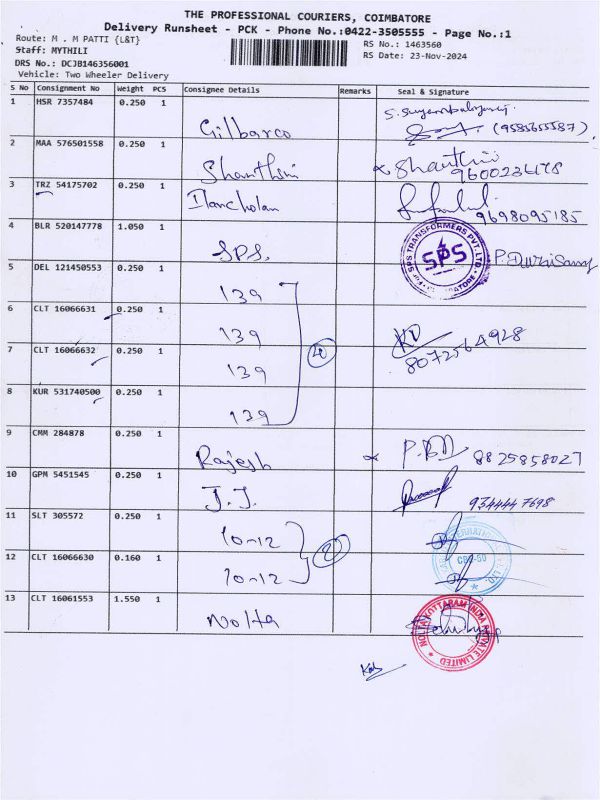 THE PROFESSIONAL COURIERS, COIMBATORE
Delivery Runsheet - PCK - Phone No.:0422-3505555 - Page No.:1
Route: M . M PATTI {L&T}
Staff: MYTHILI
RS No.: 1463560
DRS No.: DCJB146356001
RS Date: 23-Nov-2024
Vehicle: Two Wheeler Delivery
S No Consignment No Weight PCS Consignee Details Remarks Seal & Signature
1 HSR 7357484 0.250 1 Gilbarco
2 MAA 576501558 0.250 1 Shanthini Shanthini
3 TRZ 54175702 0.250 1 Ilancholan 9698095185
4 BLR 520147778 1.050 1 SPS. SPS TRANSFORMERS PVT. LTD. SPS
5 DEL 121450553 0.250 1 139
6 CLT 16066631 0.250 1 139
4 8072564928
7 CLT 16066632 0.250 1 139
8 KUR 531740500 0.250 1 139
9 CMM 284878 0.250 1 Rajesh 8825858027
10 GPM 5451545 0.250 1 J.J. 9344447698
11 SLT 305572 0.250 1 10-12
2
12 CLT 16066630 0.160 1 10-12
13 CLT 16061553 1.550 1 Nolta NOLTA KOTTARAM INDIA PRIVATE LIMITED